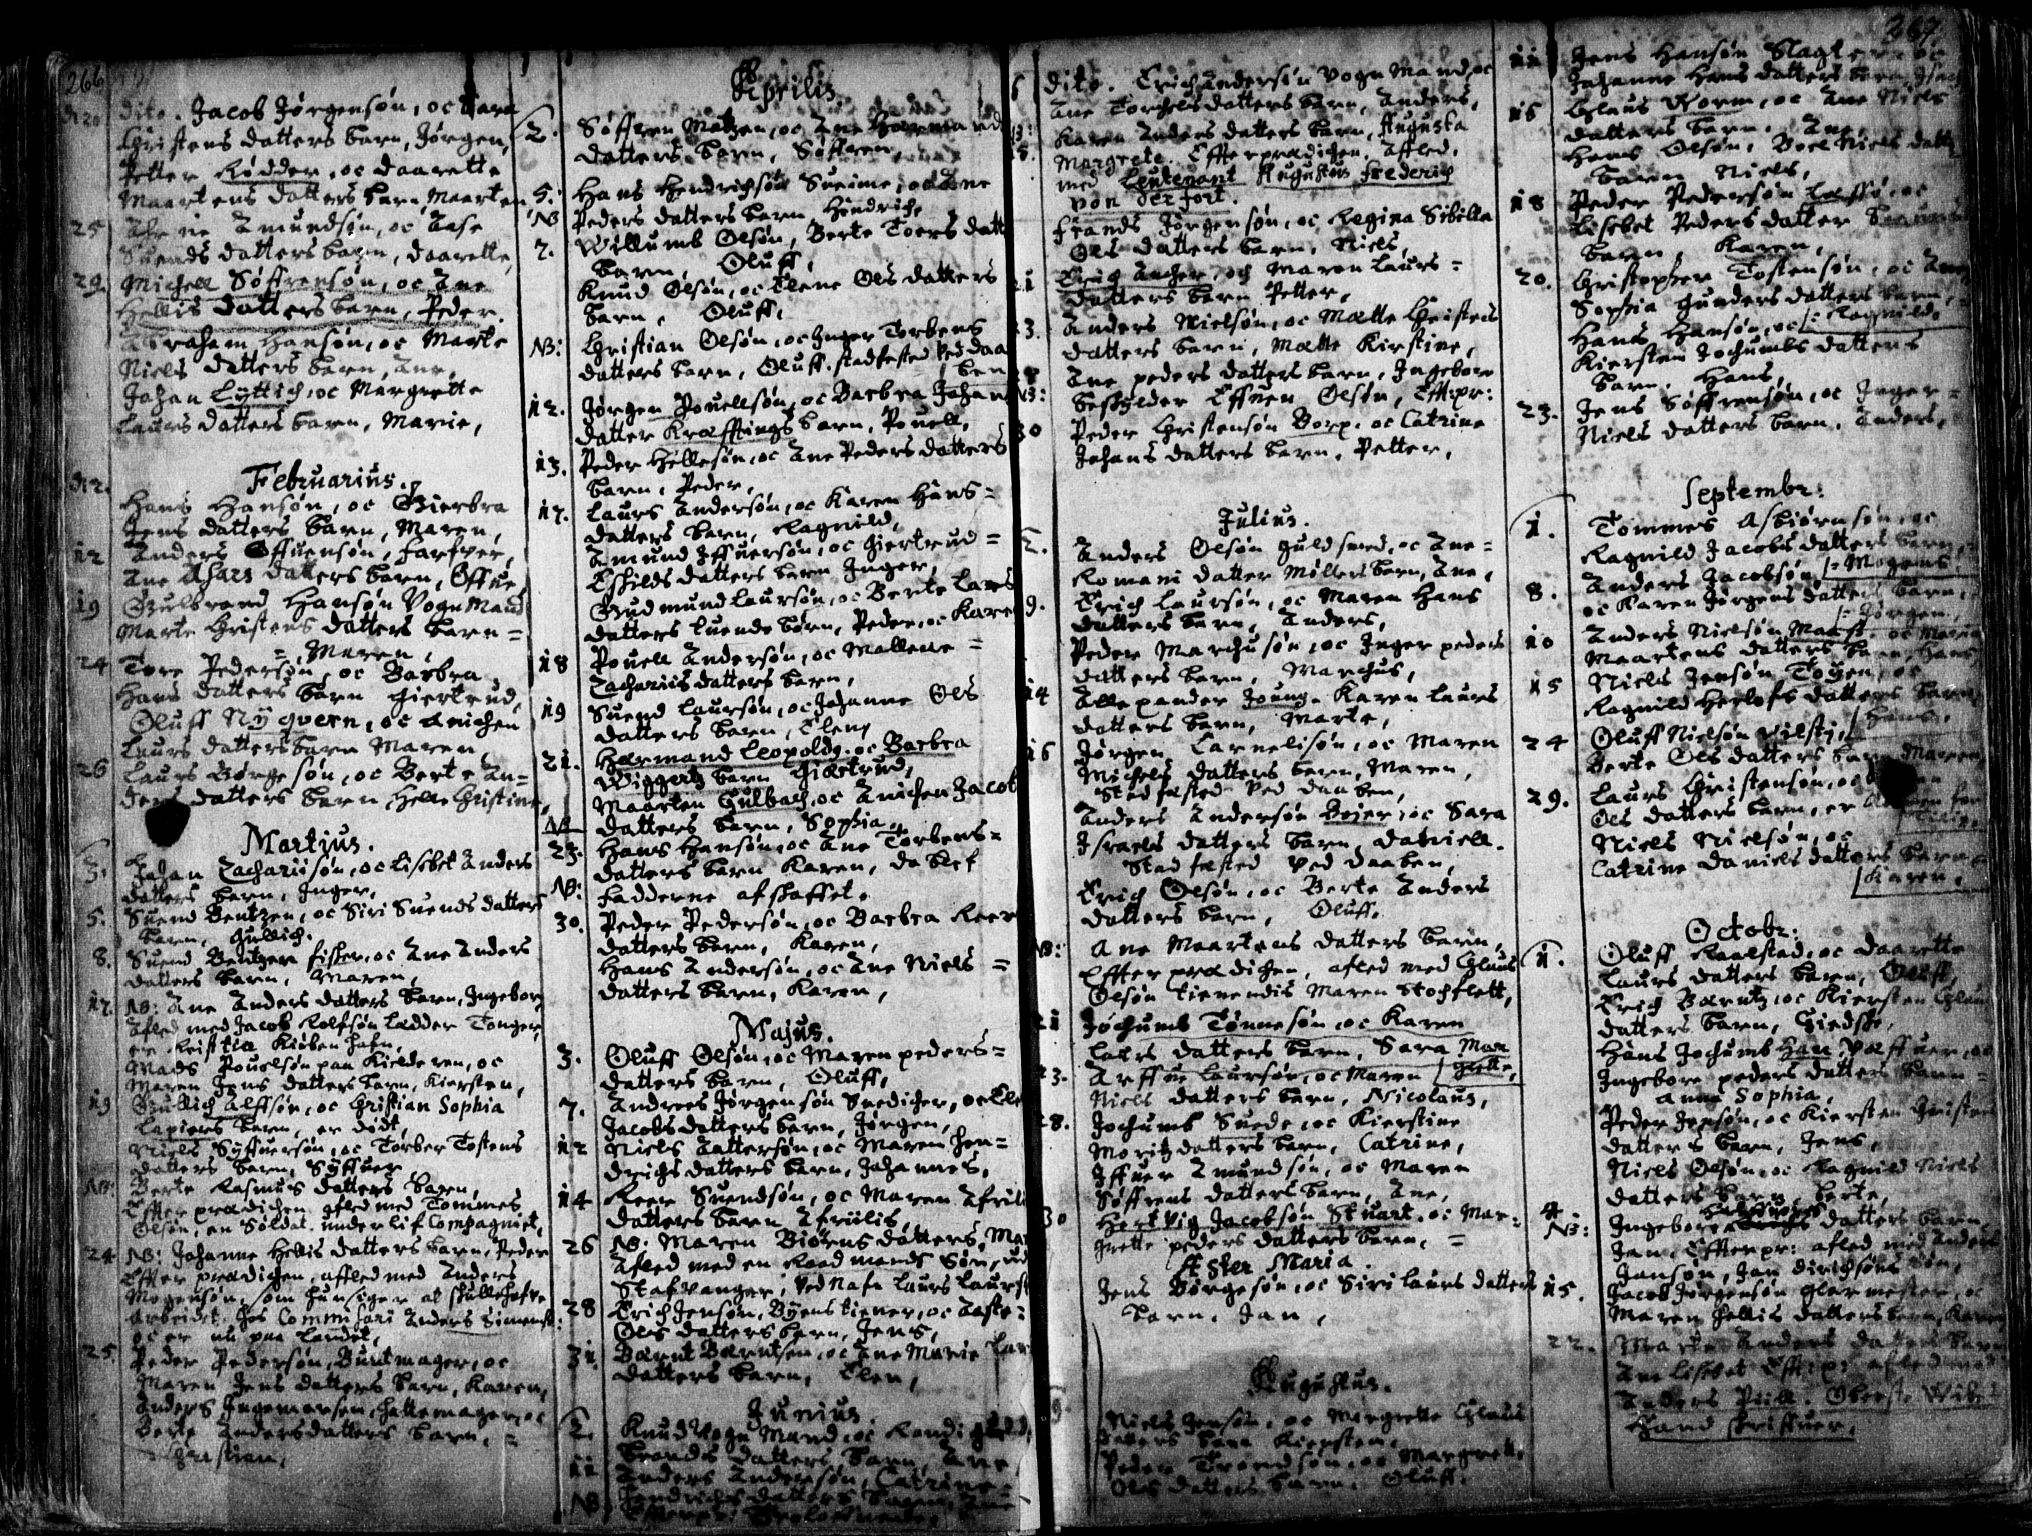 266
dito. Jacob Jørgensøn, oc Sara
Christens datters barn, Jørgen,
Petter Rødder, oc Daarette
Maartens datters barn Maarten
25 Amundsøn, oc Aase
Suends datters barn, Daarette,
29. Michell Søffrensøn, oc Ane
Hellis datters barn, Peder.
Abraham Hansøn, oc Marte
Niels datters barn, Ane,
Johan Lyttich, oc Margrette
Laurs datters barn, Marie,
Februarius.
Hans Hansøn, oc Gierbra
Jens datters barn, Maren,
12 Anders Effuensøn, farfver,
Ane datters barn,
19 Gulbrand Hansøn Vognmand
Marte Christens datters barn =
= Maren,
24 Tore Pedersøn, oc Barbra
Hans datters barn Giertrud,
Oluff Nyqvern, oc Anichen
Laurs datters barn Maren,
26 Laurs Børgesøn, oc Berte An-
ders datters barn, Helle Christine,
Martius.
3. Johan Zachariisøn, oc Lisebet Anders
datters barn, Inger,
5. Suend Bentzen, oc Siri Suends datters
barn, Gullich.
8. Suend Bentzen fisker, oc Ane Anders
datters barn, Maren,
17. NB: Ane Anders datters barn, Ingebor,
Afled med Jacob Rolfsøn Ladder Tonger,
er Reist till Kiøbenhafn,
Mads Pouelsøn paa Kielderen, oc
Maren Jens datters barn, Kiersten,
19 Gullich Alffsøn, oc Christian Sophia
Lapiers barn, er dødt,
Niels Syffuersøn, oc Torber Tostens
datters barn, Syffuer
NB: Berte Rasmus datters barn,
Effter prædichen afled med Tommes
Olsøn, en Soldat under lif Compagniet,
24 NB: Johanne Hellis datters barn, Peder
Effter prædichen, affled med Anders
Mogensøn, som hun siger at skulle hafve
Arbeidet hos Commisari Anders Simens:
oc er nu paa Landet,
25. Peder Pedersøn, Buntmager, oc
Maren Jens datters barn, Karen,
Anders Ingemarsen, hattemager, oc
Berte Anders datters barn, =
Christian,
Aprilis
2. Søffren Matzen, oc Ane Harmand
datters barn, Søffren,
5. Hans Hendrichsøn Sueime, oc Ane
NB Peders datters barn, Hindrich,
7. Willumb Olsøn, Berte Toers datt
barn, Oluff,
Knud Olsøn, oc Elene Ols datters
barn, Oluff,
NB: Christian Olsøn, oc Inger Torbens
datters barn, Oluff. stadfested ved daa
ben
12. Jørgen Pouellsøn, oc Barbra Johan
datter Kræfftings barn, Pouell,
13. Peder Hellesøn, oc Ane Peders datters
barn, Peder,
17. Laurs Andersøn, oc Karen Hans =
datters barn, Ragnild,
Amund Iffuersøn, oc Giertrud =
Eskilds datters barn Inger,
Gudmund Laursøn, oc Berte Lars
datters tuende børn, Peder, oc Kare
18 Pouell Andersøn, oc Mallene =
Zachariis datters barn,
19 Suend Laursøn, oc Johanne Ols
datters barn, Elen,
21. Harmand Leopoldg. oc Barbra
Wiggertz barn Giertrud,
Maarten Gulbach, oc Anichen Jacob
NB datters barn, Sophia,
23. Hans Hansøn, oc Ane Torbens =
datters barn Karen, da blef
NB: fadderne afskaffet.
30. Peder Pedersøn, oc Barbra Reer
datters barn, Karen,
Hans Andersøn, oc Ane Niels =
datters barn, Karen,
Majus.
3. Oluff Olsøn, oc Maren peders =
datters barn, Oluff,
7. Andrees Jørgensøn Snedicher, oc Ele
Jacobs datters barn, Jørgen,
12 Niels Zattersøn, oc Maren Hen =
drichs datters barn, Johannes,
14 Reer Suendsøn, oc Maren Afrili
datters barn Afriilis,
26 NB: Maren Biørns datters, Mar
Afled med en Raadmands Søn, ud
Stafvanger, ved Nafn Laurs Laurs
28 Erich Jensøn, Byens tiener, oc Aaste =
Ols datters barn, Jens,
31. Barnt Barntsen, oc Ane Marie Lar
datters barn, Elen,
Junius.
2. Knud Vognmand, oc Randi
brands datters barn, Ane
11 Anders Andersøn, Catrine =
NB Hendrichs datters barn,
267
6 dito. Erich Andersøn Vognmand, oc
Ane Torchels datters barn, Anders,
Karen Anders datters barn, Augusta
Margrete. Effterprædichen. Affled.
med Leutenant Augustus Frederich
von Derfort.
Frands Jørgensøn, oc Regina Sibilla
Ols datters barn, Niels,
Erich Ancher, och Maren Laurs =
datters barn Petter,
Anders Nielsøn, oc Matte Christens
datters barn, Matte Kirstine,
Ane peders datters barn, Ingebore
NB: beskylder Effuen Olsøn, Eft:pr:
30 Peder Christensøn Borp. oc Catrine
Johans datters barn, Petter,
Julius.
2. Anders Olsøn Guldsmed, oc Ane =
Romani datter Møllers barn, Ane,
9. Erich Laursøn, oc Maren Hans
datters barn, Anders,
Peder Marchusøn, oc Inger peders
datters barn, Marchus,
14 Allexander Joung, Karen Laurs
datters barn, Marte,
16 Jørgen Carnelisøn, oc Maren
Michels datters barn, Maren,
Stadfæsted ved daaben,
Anders Andersøn Beier, oc Sara
Israels datters barn, Daniell.
Stadfæsted ved daaben,
Erich Olsøn, oc Berte Anders
datters barn, Oluff,
NB: Ane Maartens datters barn,
Effter prædichen, afled med Claus
Olsøn tienendis Maren Stochflett,
21 Jochumb Tønnesøn, oc Karen
Lars datters barn, Sara Mar
grette,
23. Arffue Laursøn, oc Maren
Niels datters barn, Nicolaus,
28. Jochumb Suede, oc Kierstine
Moritz datters barn, Catrine,
Iffuer Amundsøn, oc Maren
Søffrens datters barn, Ane,
30 Hertvig Jacobsøn Stuart. oc Mar =
grette peders datters barn, =
Ester Maria.
Jens Børgesøn, oc Siri Laurs datters
barn, Jan,
Augustus.
9. Niels Jensøn, oc Margrette Claus
datters barn Kiersten,
Peder Trondsøn, oc Margrett
Ols datters barn, Oluff.
11 Jens Hansøn Slagter oc
Johanne Hans datters barn
16 Claus Worm, oc Ane Niels
datters barn, Ane,
Hans Olsøn, Boel Niels datt
barn Niels,
18 Peder Pedersøn Lassø, oc
Lisebet Peders datter
barn, Karen,
20. Christopher Tostensøn, oc Ane
Sophia Gunders datters barn,
Ragnild,
Hans Hansøn, oc
Kiersten Jochumbs datters
barn, Hans,
23. Jens Søffrensøn, oc Inger =
Niels datters barn, Anders,
Septembr:
1. Tommes Asbiørnsøn, oc
Ragnild Jacobs datters barn
Mogens
8. Anders Jacobsøn
oc Karen Jørgens datters barn,
Jørgen,
10 Anders Nielsøn Maast. oc Maren
Maartens datters barn, Hans
15 Niels Jensøn Toyen, oc
Ragnild Herlofs datters barn,
Hans,
24 Oluff Nielsøn Vilstj,
Berte Ols datters barn Maren
29. Laurs Christensøn, oc
Ols datters barn, er
Niels Nielsøn, oc
Catrine Daniels datters barn
Karen,
Octobr:
1. Oluff Raalstad, oc Daarette
Laurs datters barn, Oluff,
Erich Barntz, oc Kiersten Claus
datters barn, Giedske,
Hans Jochumb, oc
Ingebore peders datters barn =
Anna Sophia,
Peder Jepsøn, oc Kiersten Christen
datters barn, Jens,
Niels Olsøn, oc Ragnild Niels
datters barn, Berte,
4
NB: Ingebore datters barn,
Jan, Effterpr: afled med Anders
Jansøn, Jan Dirichsøns Søn,
15. Jacob Jørgensøn Glarmester, oc
Maren Hellis datters barn, Karen
22. Marte Anders datters barn
Ane Lisebet Eft: pr: afled med
Anders Piill. Oberste
Hand skriffuer,